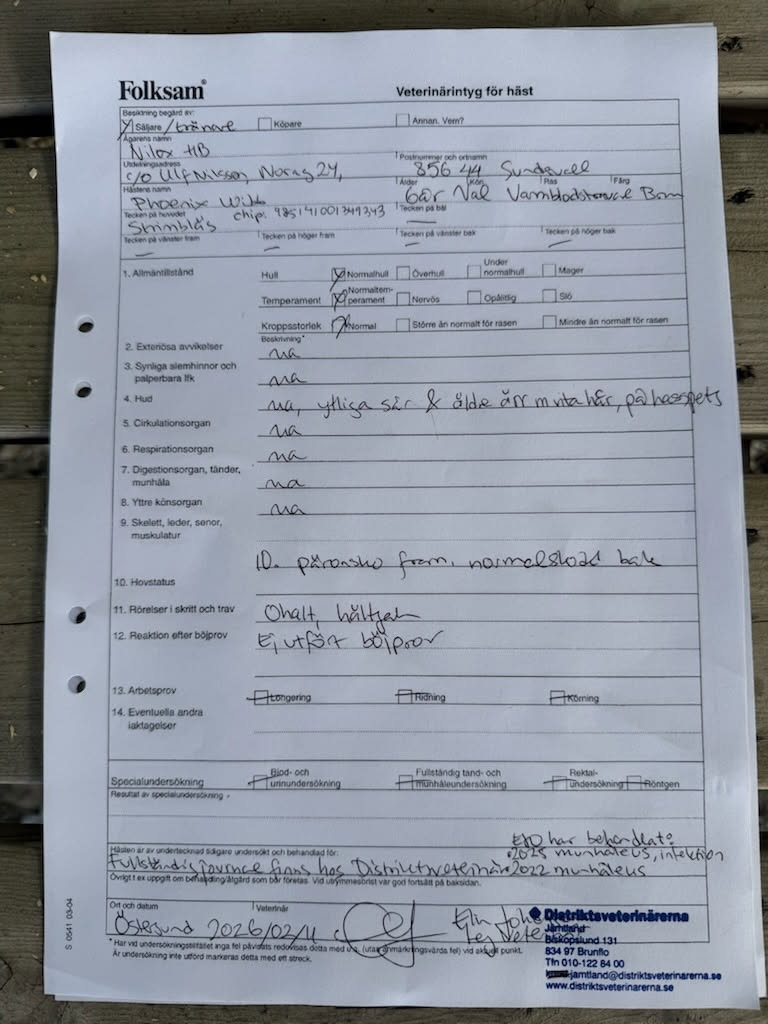 Folksam®
Veterinärintyg för häst
Besiktning begärd av:
Säljare /tränare
Köpare
Annan. Vem?
Ägarens namn
Nilox HB
Utdelningsadress
c/o Ulf Nilsson, Norag 24,
Postnummer och ortnamn
856 44 Sundsvall
Hästens namn
Phoenix
Ålder
Kön
Ras
Färg
6år Val Varmblodstravare Brun
Tecken på huvudet
Strimbläs
chip: 985141001349343
Tecken på bål
Tecken på vänster fram
Tecken på höger fram
Tecken på vänster bak
Tecken på höger bak
1. Allmäntillstånd
Hull
Normalhull
Överhull
Under normalhull
Mager
Temperament
Normaltemperament
Nervös
Opålitlig
Slö
Kroppsstorlek
Normal
Större än normalt för rasen
Mindre än normalt för rasen
Beskrivning*
2. Exteriösa avvikelser
ua
3. Synliga slemhinnor och
palperbara lfk
ua
4. Hud
ua, ytliga sår & äldre ärr m vita hår, på hasspets
5. Cirkulationsorgan
ua
6. Respirationsorgan
ua
7. Digestionsorgan, tänder,
munhåla
ua
8. Yttre könsorgan
ua
9. Skelett, leder, senor,
muskulatur
10. päronsko fram, normalskodd bak
10. Hovstatus
11. Rörelser i skritt och trav
Ohalt,
12. Reaktion efter böjprov
Ej utfört böjprov
13. Arbetsprov
Longering
Ridning
Körning
14. Eventuella andra
iakttagelser
Specialundersökning
Blod- och
urinundersökning
Fullständig tand- och
munhåleundersökning
Rektal-
undersökning
Röntgen
Resultat av specialundersökning
Hästen är av undertecknad tidigare undersökt och behandlad för:
har behandlat:
• 2025 munhåleus, infektion
Fullständig journal finns hos Distriktsveterinär
• 2022 munhåleus
Övrigt t ex uppgift om behandling/åtgärd som bör företas. Vid utrymmesbrist var god fortsätt på baksidan.
Ort och datum
Östersund 2026/02/11
Veterinär
Elin
Leg Veterinär
Distriktsveterinärerna
Jämtland
Biskopslund 131
834 97 Brunflo
Tfn 010-122 84 00
jamtland@distriktsveterinarerna.se
www.distriktsveterinarerna.se
* Har vid undersökningstillfället inga fel påvisats redovisas detta med u.a. (utan anmärkningsvärda fel) vid aktuell punkt.
Är undersökning inte utförd markeras detta med ett streck.
S 0541 03-04